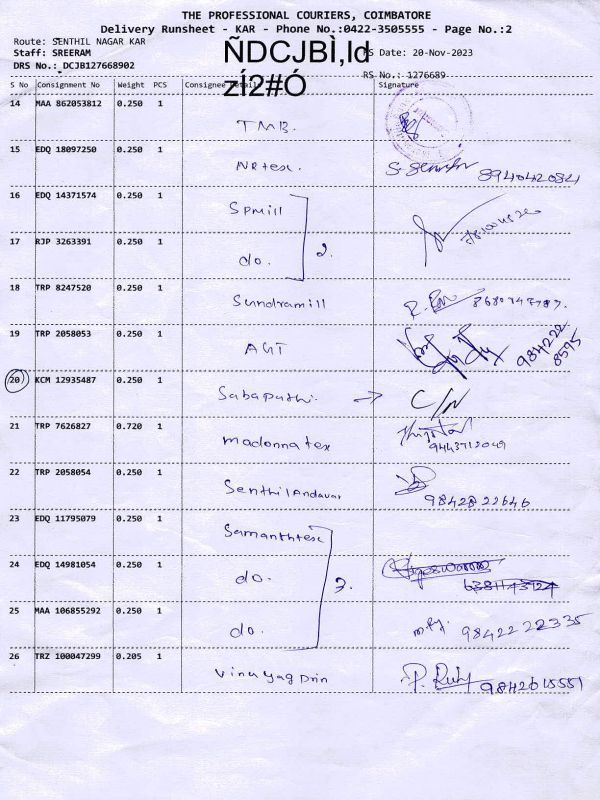 THE PROFESSIONAL COURIERS, COIMBATORE
Delivery Runsheet - KAR - Phone No.:0422-3505555 - Page No.:2
Route: SENTHIL NAGAR KAR
Staff: SREERAM
DRS No.: DCJB127668902
ÑDCJBÌ,ld
zÍ2#Ó
Date: 20-Nov-2023
RS No.: 1276689
S No Consignment No Weight PCS Consignee Signature
14 MAA 862053812 0.250 1
TMB.
15 EDQ 18097250 0.250 1
NRtex. 8940420821
16 EDQ 14371574 0.250 1
Spmill
17 RJP 3263391 0.250 1
do. 2.
18 TRP 8247520 0.250 1
Sundramill
19 TRP 2058053 0.250 1
AGT 984222 8595
20 KCM 12935487 0.250 1
Sabapathi. → C/N
21 TRP 7626827 0.720 1
madonnatex 9443712049
22 TRP 2058054 0.250 1
SenthilAndavar 9842822646
23 EDQ 11795079 0.250 1
Samanthtex
24 EDQ 14981054 0.250 1
do. 3. 6381143124
25 MAA 106855292 0.250 1
do. 98422 22335
26 TRZ 100047299 0.205 1
vinayag prin 9842615551